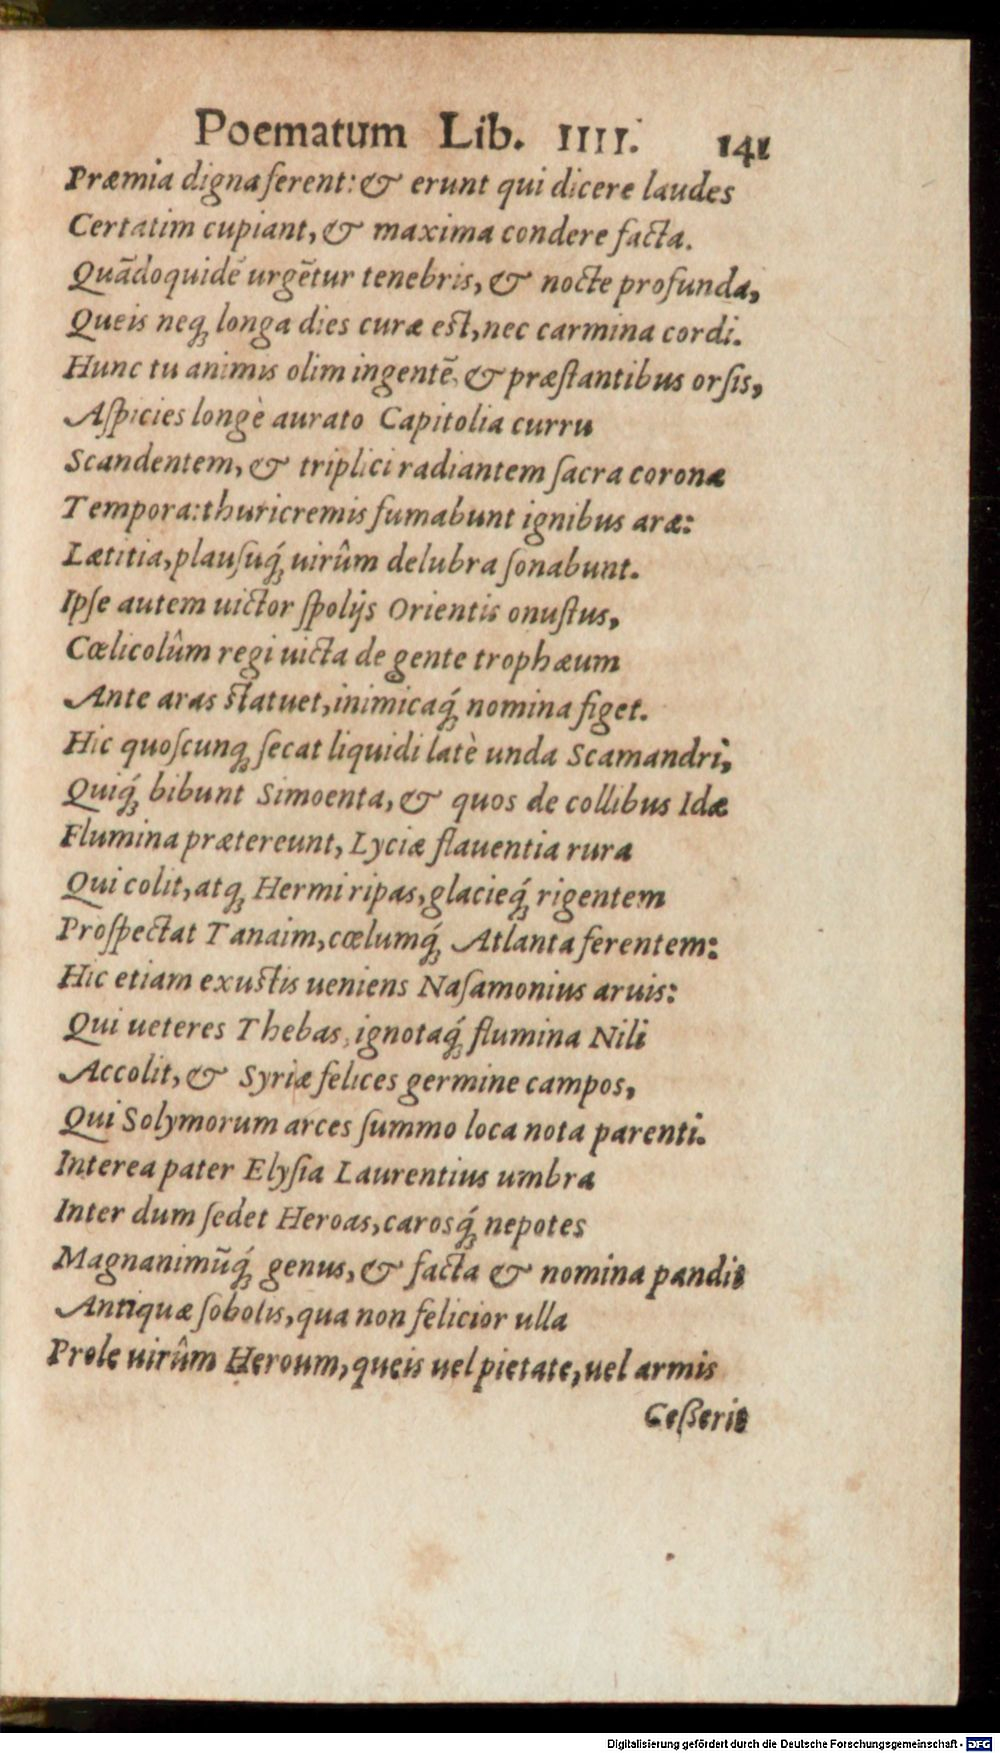 Poematum Lib. IIII. 141
Præmia digna ferent: & erunt qui dicere laudes
Certatim cupiant, & maxima condere facta.
Quādoquidē urgētur tenebris, & nocte profunda,
Queis neq; longa dies curæ est, nec carmina cordi.
Hunc tu animis olim ingentē, & præstantibus orsis,
Aspicies longè aurato Capitolia curru
Scandentem, & triplici radiantem sacra corona
Tempora: thuricremis fumabunt ignibus aræ:
Lætitia, plausuq́; uirûm delubra sonabunt.
Ipse autem uictor spolijs Orientis onustus,
Cœlicolûm regi uicta de gente trophæum
Ante aras statuet, inimicaq́; nomina figet.
Hic quoscunq; secat liquidi latè unda Scamandri,
Quiq́; bibunt Simoenta, & quos de collibus Idæ
Flumina prætereunt, Lyciæ flauentia rura
Qui colit, atq; Hermi ripas, glacieq́; rigentem
Prospectat Tanaim, cœlumq́; Atlanta ferentem:
Hic etiam exustis ueniens Nasamonius aruis:
Qui ueteres Thebas, ignotaq́; flumina Nili
Accolit, & Syriæ felices germine campos,
Qui Solymorum arces summo loca nota parenti.
Interea pater Elysia Laurentius umbra
Inter dum sedet Heroas, carosq́; nepotes
Magnanimūq́; genus, & facta & nomina pandit
Antiquæ sobolis, qua non felicior ulla
Prole uirûm Heroum, queis uel pietate, uel armis
Ceßerit
Digitalisierung gefördert durch die Deutsche Forschungsgemeinschaft - DFG